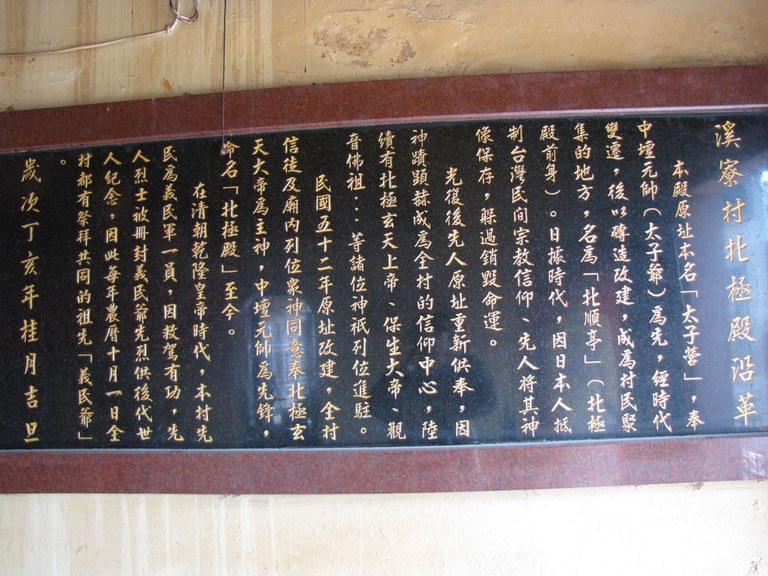 溪寮村北極殿沿革
本殿原址本名「太子營」,奉
中壇元帥(太子爺)為先,經時代
變遷,後以磚造改建,成為村民聚
集的地方,名為「北順亭」(北極
殿前身)。日據時代,因日本人抵
制台灣民間宗教信仰、先人將其神
像保存,躲過銷毀命運。
光復後先人原址重新供奉,因
神蹟顯赫成為全村的信仰中心,陸
續有北極玄天上帝、保生大帝、觀
音佛祖...等諸位神祇列位進駐。
民國五十二年原址改建,全村
信徒及廟內列位眾神同意奉北極玄
天大帝為主神,中壇元帥為先鋒,
命名「北極殿」至今。
在清朝乾隆皇帝時代,本村先
民為義民軍一員,因救駕有功,先
人烈士被冊封義民爺先烈供後代世
人紀念,因此每年農曆十月一日全
村都有祭拜共同的祖先「義民爺」
。
歲次丁亥年桂月吉旦